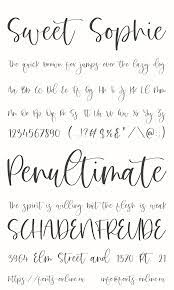 Sweet Sophie
the quick brown fox jumps over the lazy dog
Aa Bb Cc Dd Ee Ff Gg Hh Ii Jj Kk Ll Mm
Nn Oo Pp Qq Rr Ss Tt Uu Vv Ww Xx Yy Zz
1234567890 ( !?# $%& * /\@ .;)
Penultimate
the spirit is willing but the flesh is weak
SCHADENFREUDE
3964 Elm Street and 1370 Rt. 21